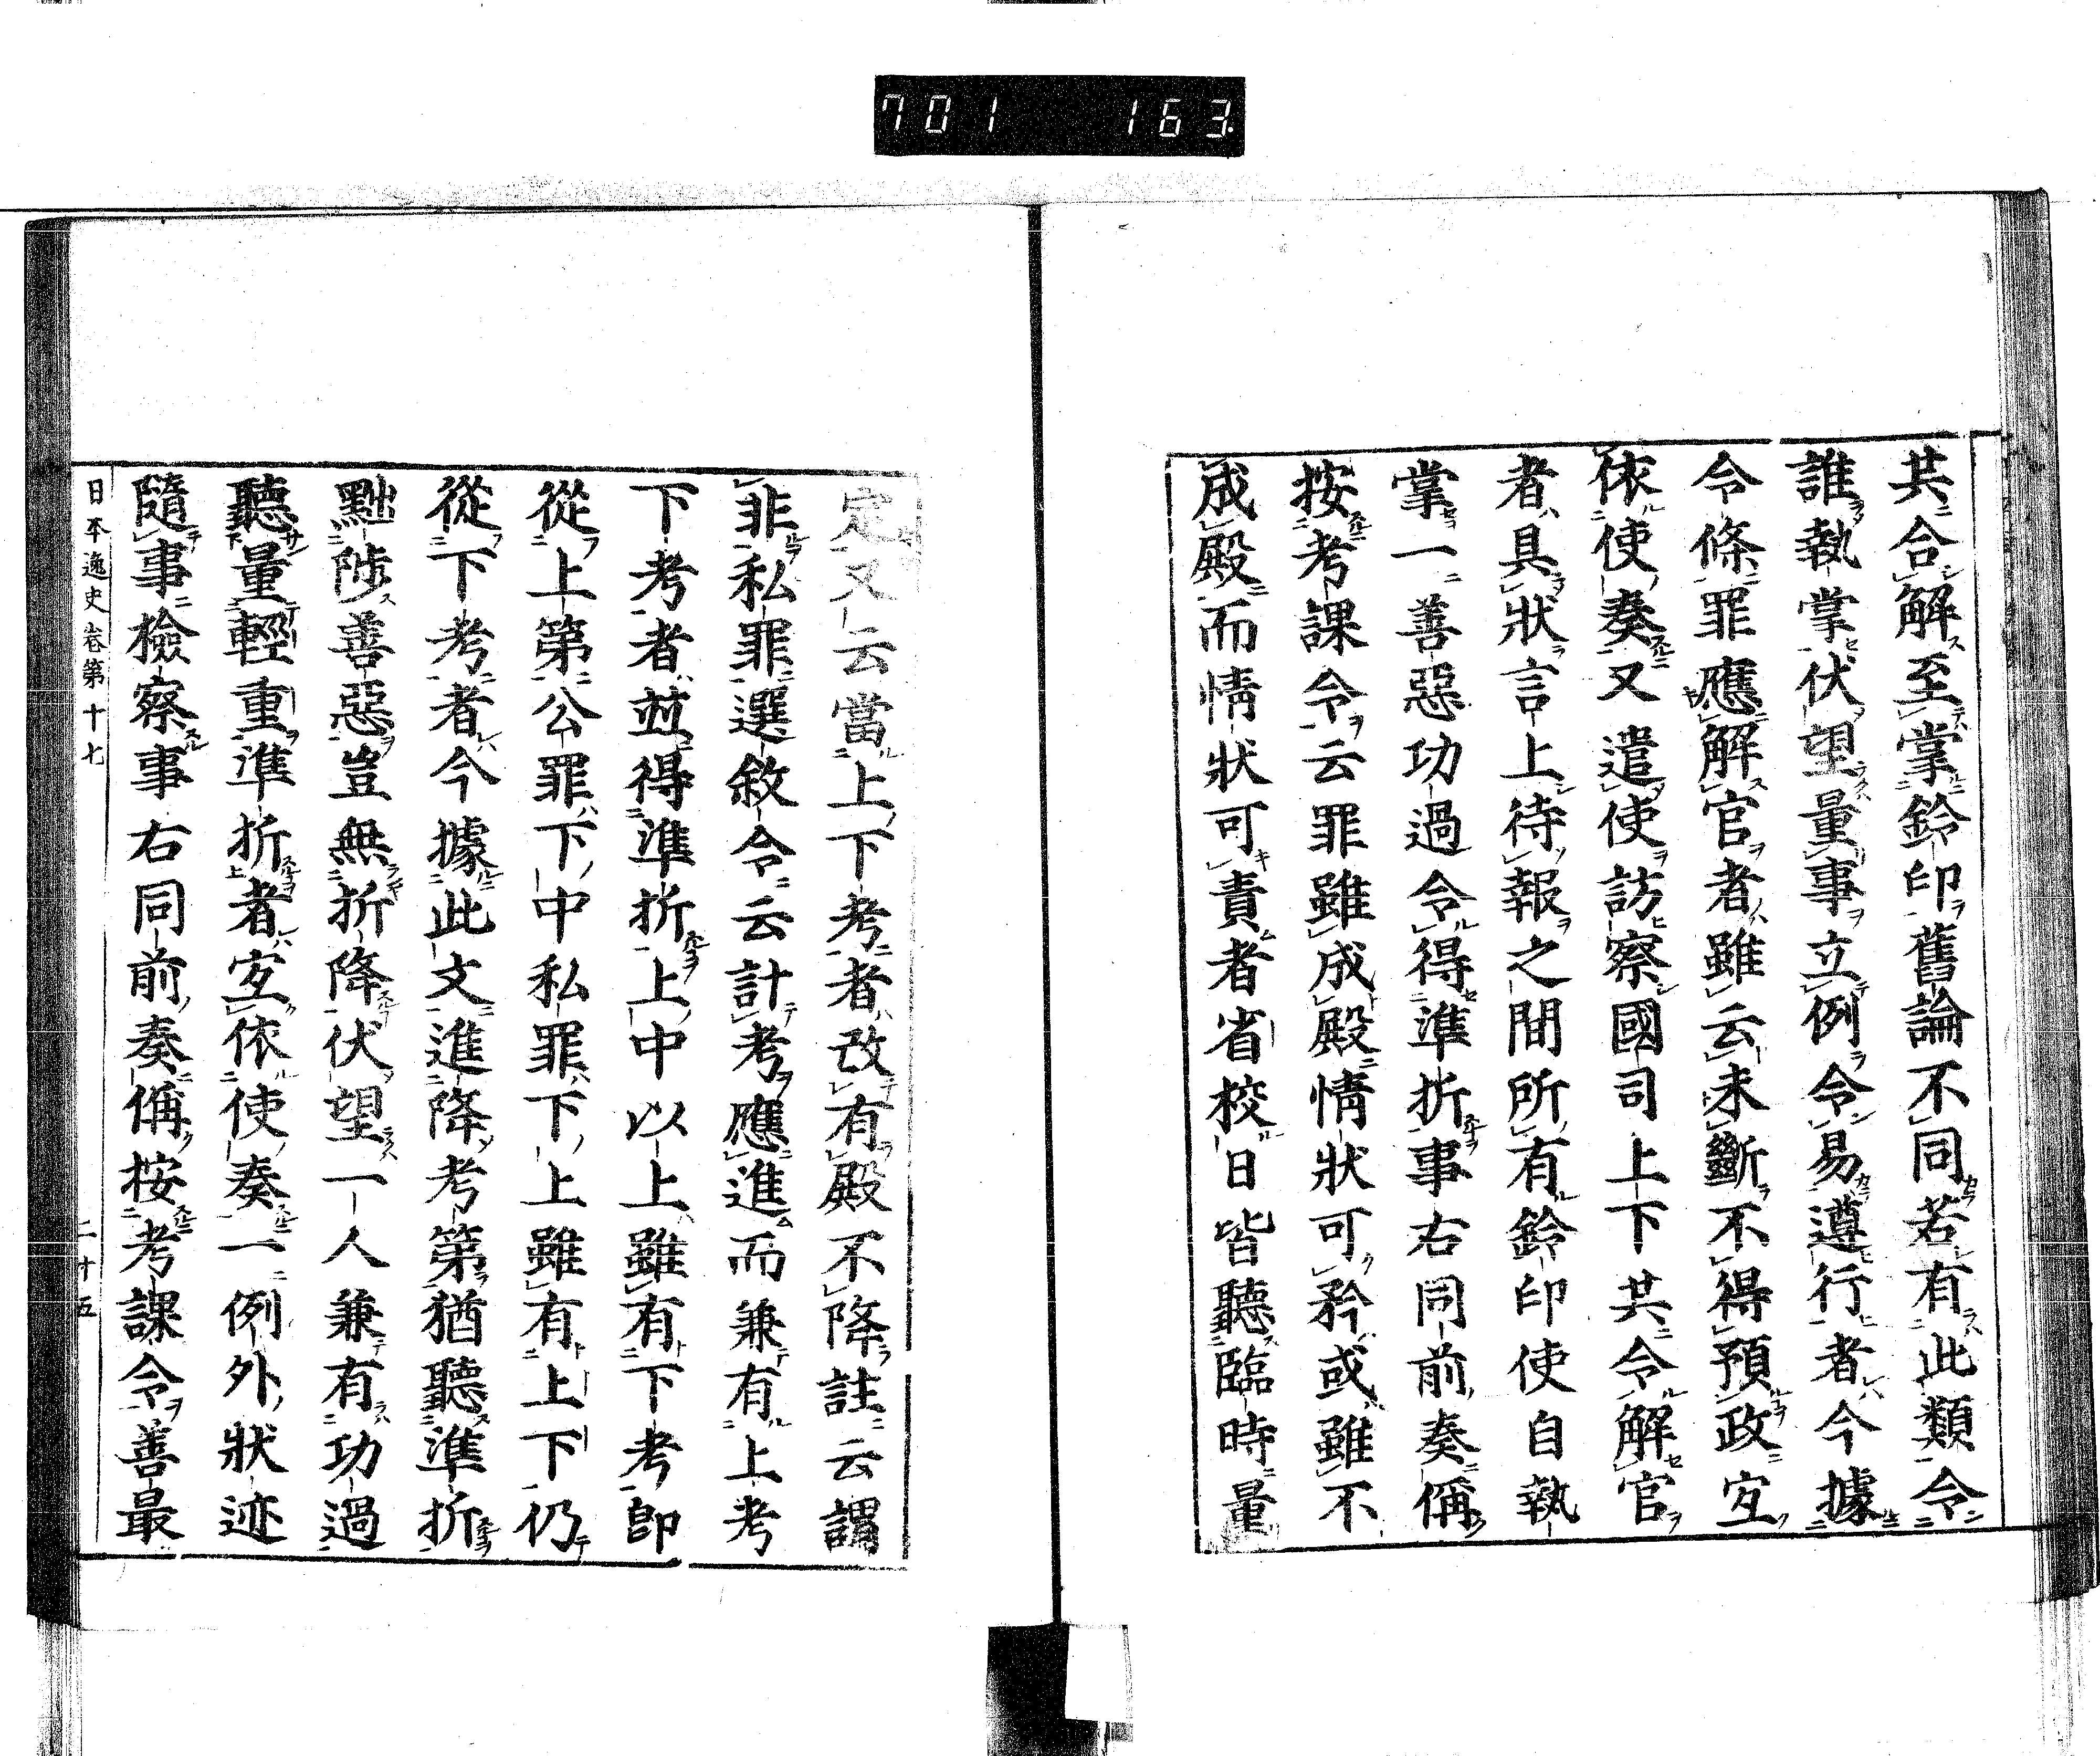 701 163
共合解至掌鈴印舊論不同若有此類令
誰執掌伏望量事立例令易遵行者今據
令條罪應解官者雖云未斷不得預政宐
依使奏又遣使訪察國司上下共令解官
者具狀言上待報之間所有鈴印使自執
掌一善惡功過令得準折事右同前奏偁
按考課令云罪雖成殿情狀可矜或雖不
成殿而情狀可責者省校日皆聽臨時量
定又云當上下考者改有殿不降註云謂
非私罪選敘令云計考應進而兼有上考
下考者並得準折上中以上雖有下考卽
從上第公罪下中私罪下上雖有上下仍
從下考者今據此文進降考第猶聽準折
黜陟善惡豈無折降伏望一人兼有功過
聽量輕重準折者宐依使奏一例外狀迹
隨事檢察事右同前奏偁按考課令善最
日本逸史卷第十七 二十五